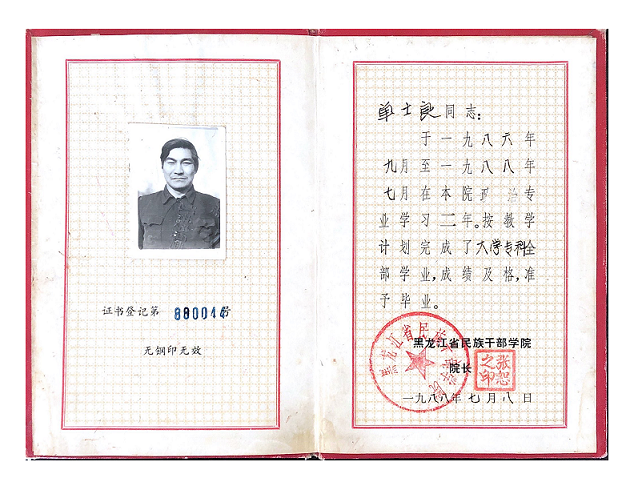 证书登记第880014号
无钢印无效
单士良同志:
于一九八六年
九月至一九八八年
七月在本院政治专
业学习二年。按教学
计划完成了大学专科全
部学业,成绩及格,准
予毕业。
黑龙江省民族干部学院
院长
张恕之印
一九八八年七月八日
黑龙江省民族干部学院